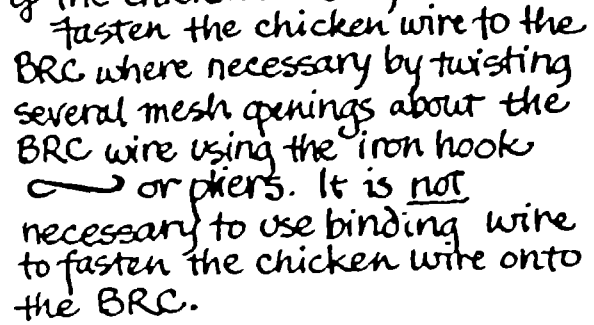 fasten the chicken wire to the
BRC where necessary by twisting
several mesh openings about the
BRC wire using the iron hook
or pliers. It is not
necessary to use binding wire
to fasten the chicken wire onto
the BRC.